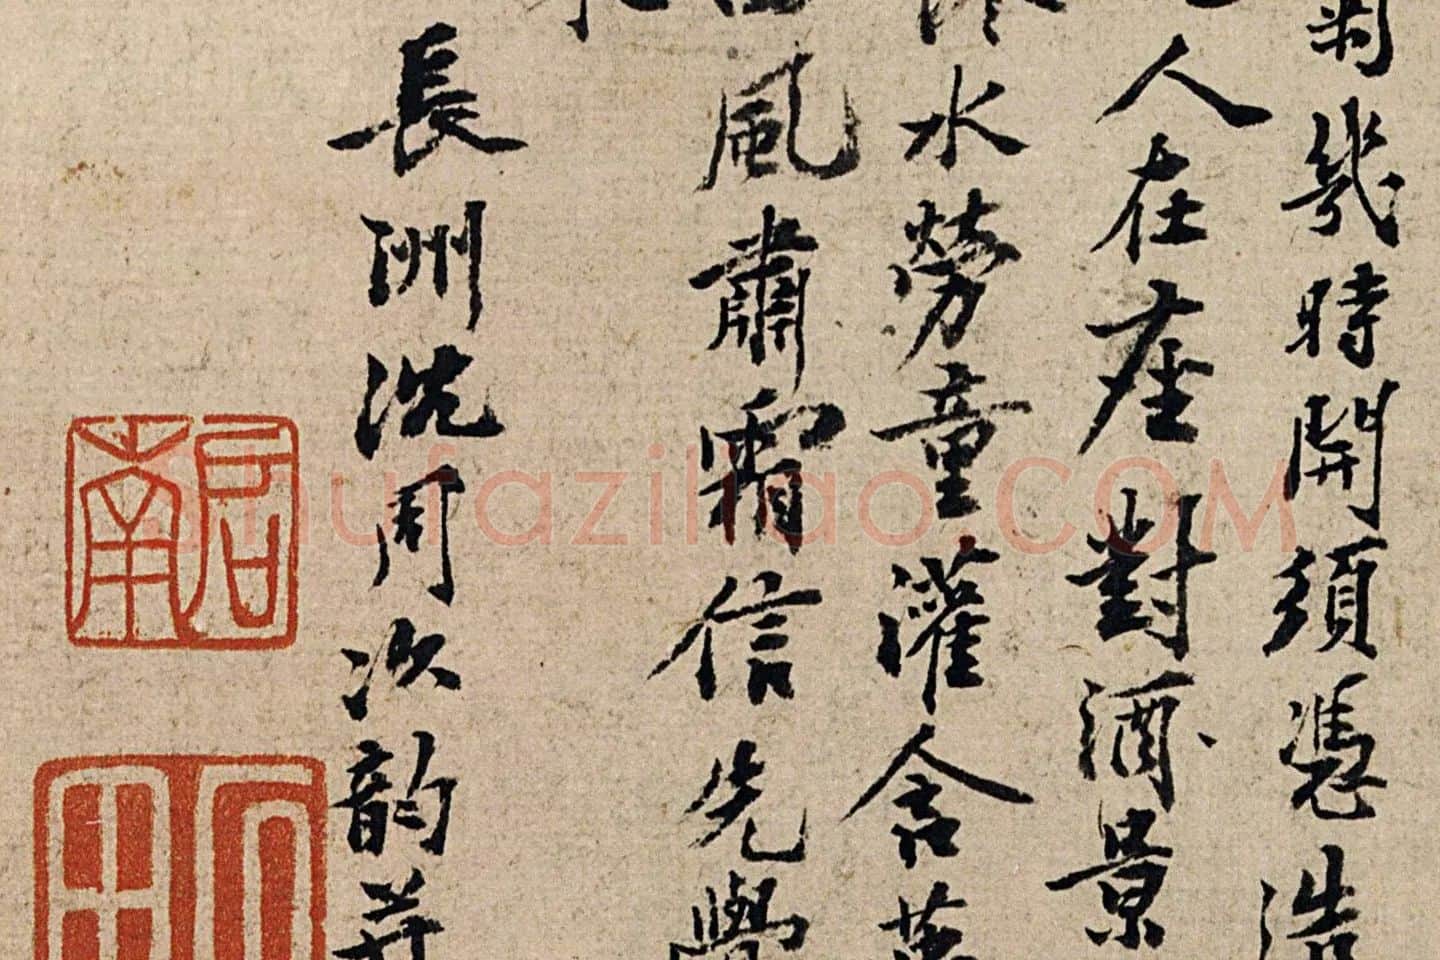 菊幾時開須憑浩
人在座對酒景
水勞童灌含
風肅霜信先覺
長洲沈周次韵并
啟南
Shufaziliao.COM